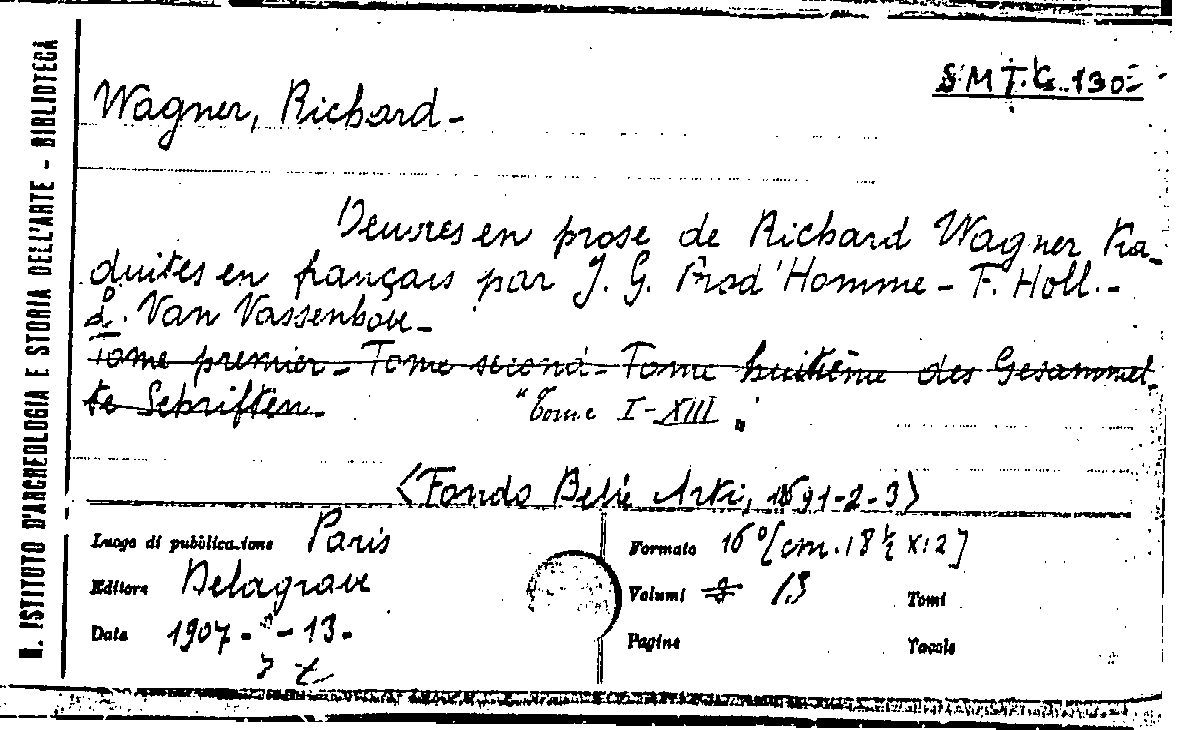 R. ISTITUTO D'ARCHEOLOGIA E STORIA DELL'ARTE - BIBLIOTECA
S.M T.G. 130
Wagner, Richard -
Oeuvres en prose de Richard Wagner tra-
duites en français par J. G. Prod'Homme - F. Holl. -
L. Van Vassenhove -
Tome premier - Tome second - Tome huitième des Gesammel-
te Schriften -
"Tome I-XIII"
<Fondo Belle Arti, 1691-2-3>
Luogo di pubblicazione Paris
Formato 16° [cm. 18 ½ X12]
Editore Delagrave
Volumi 13 Tomi
Data 1907 - - 13 -
Pagine Tavole